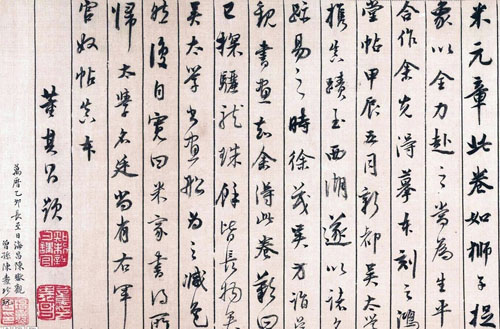 米元章此卷如獅子捉
象以全力赴之當為生平
合作余先得摹本刻之鴻
堂帖甲辰五月新都吳太学
攜真蹟至西湖遂以諸
跡易之時徐茂吳方詣吳
觀書畫知余得此卷歎曰
已探驪龍珠餘皆長物矣
吳太学書畫船為之減色
然復自寬曰米家書得所
歸太學名廷尚有右軍
官奴帖真本
董其昌題
萬曆乙卯長至日海昌陳瓛觀
曾孫陳